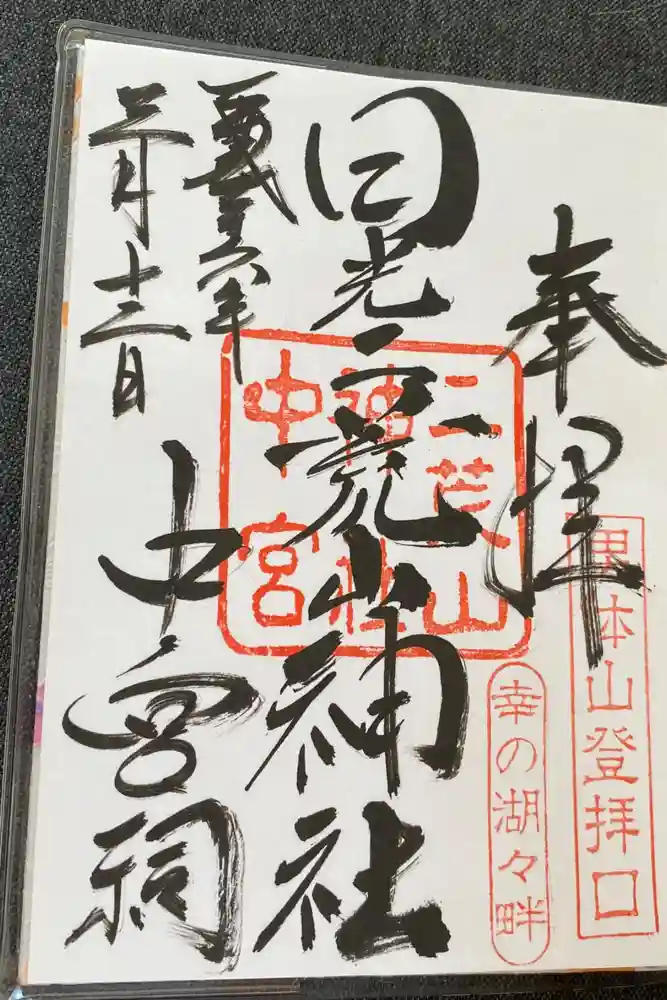 奉拝
男体山登拝口
幸の湖々畔
日光二荒山神社
二荒山
神社
中宮
中宮祠
三月十三日